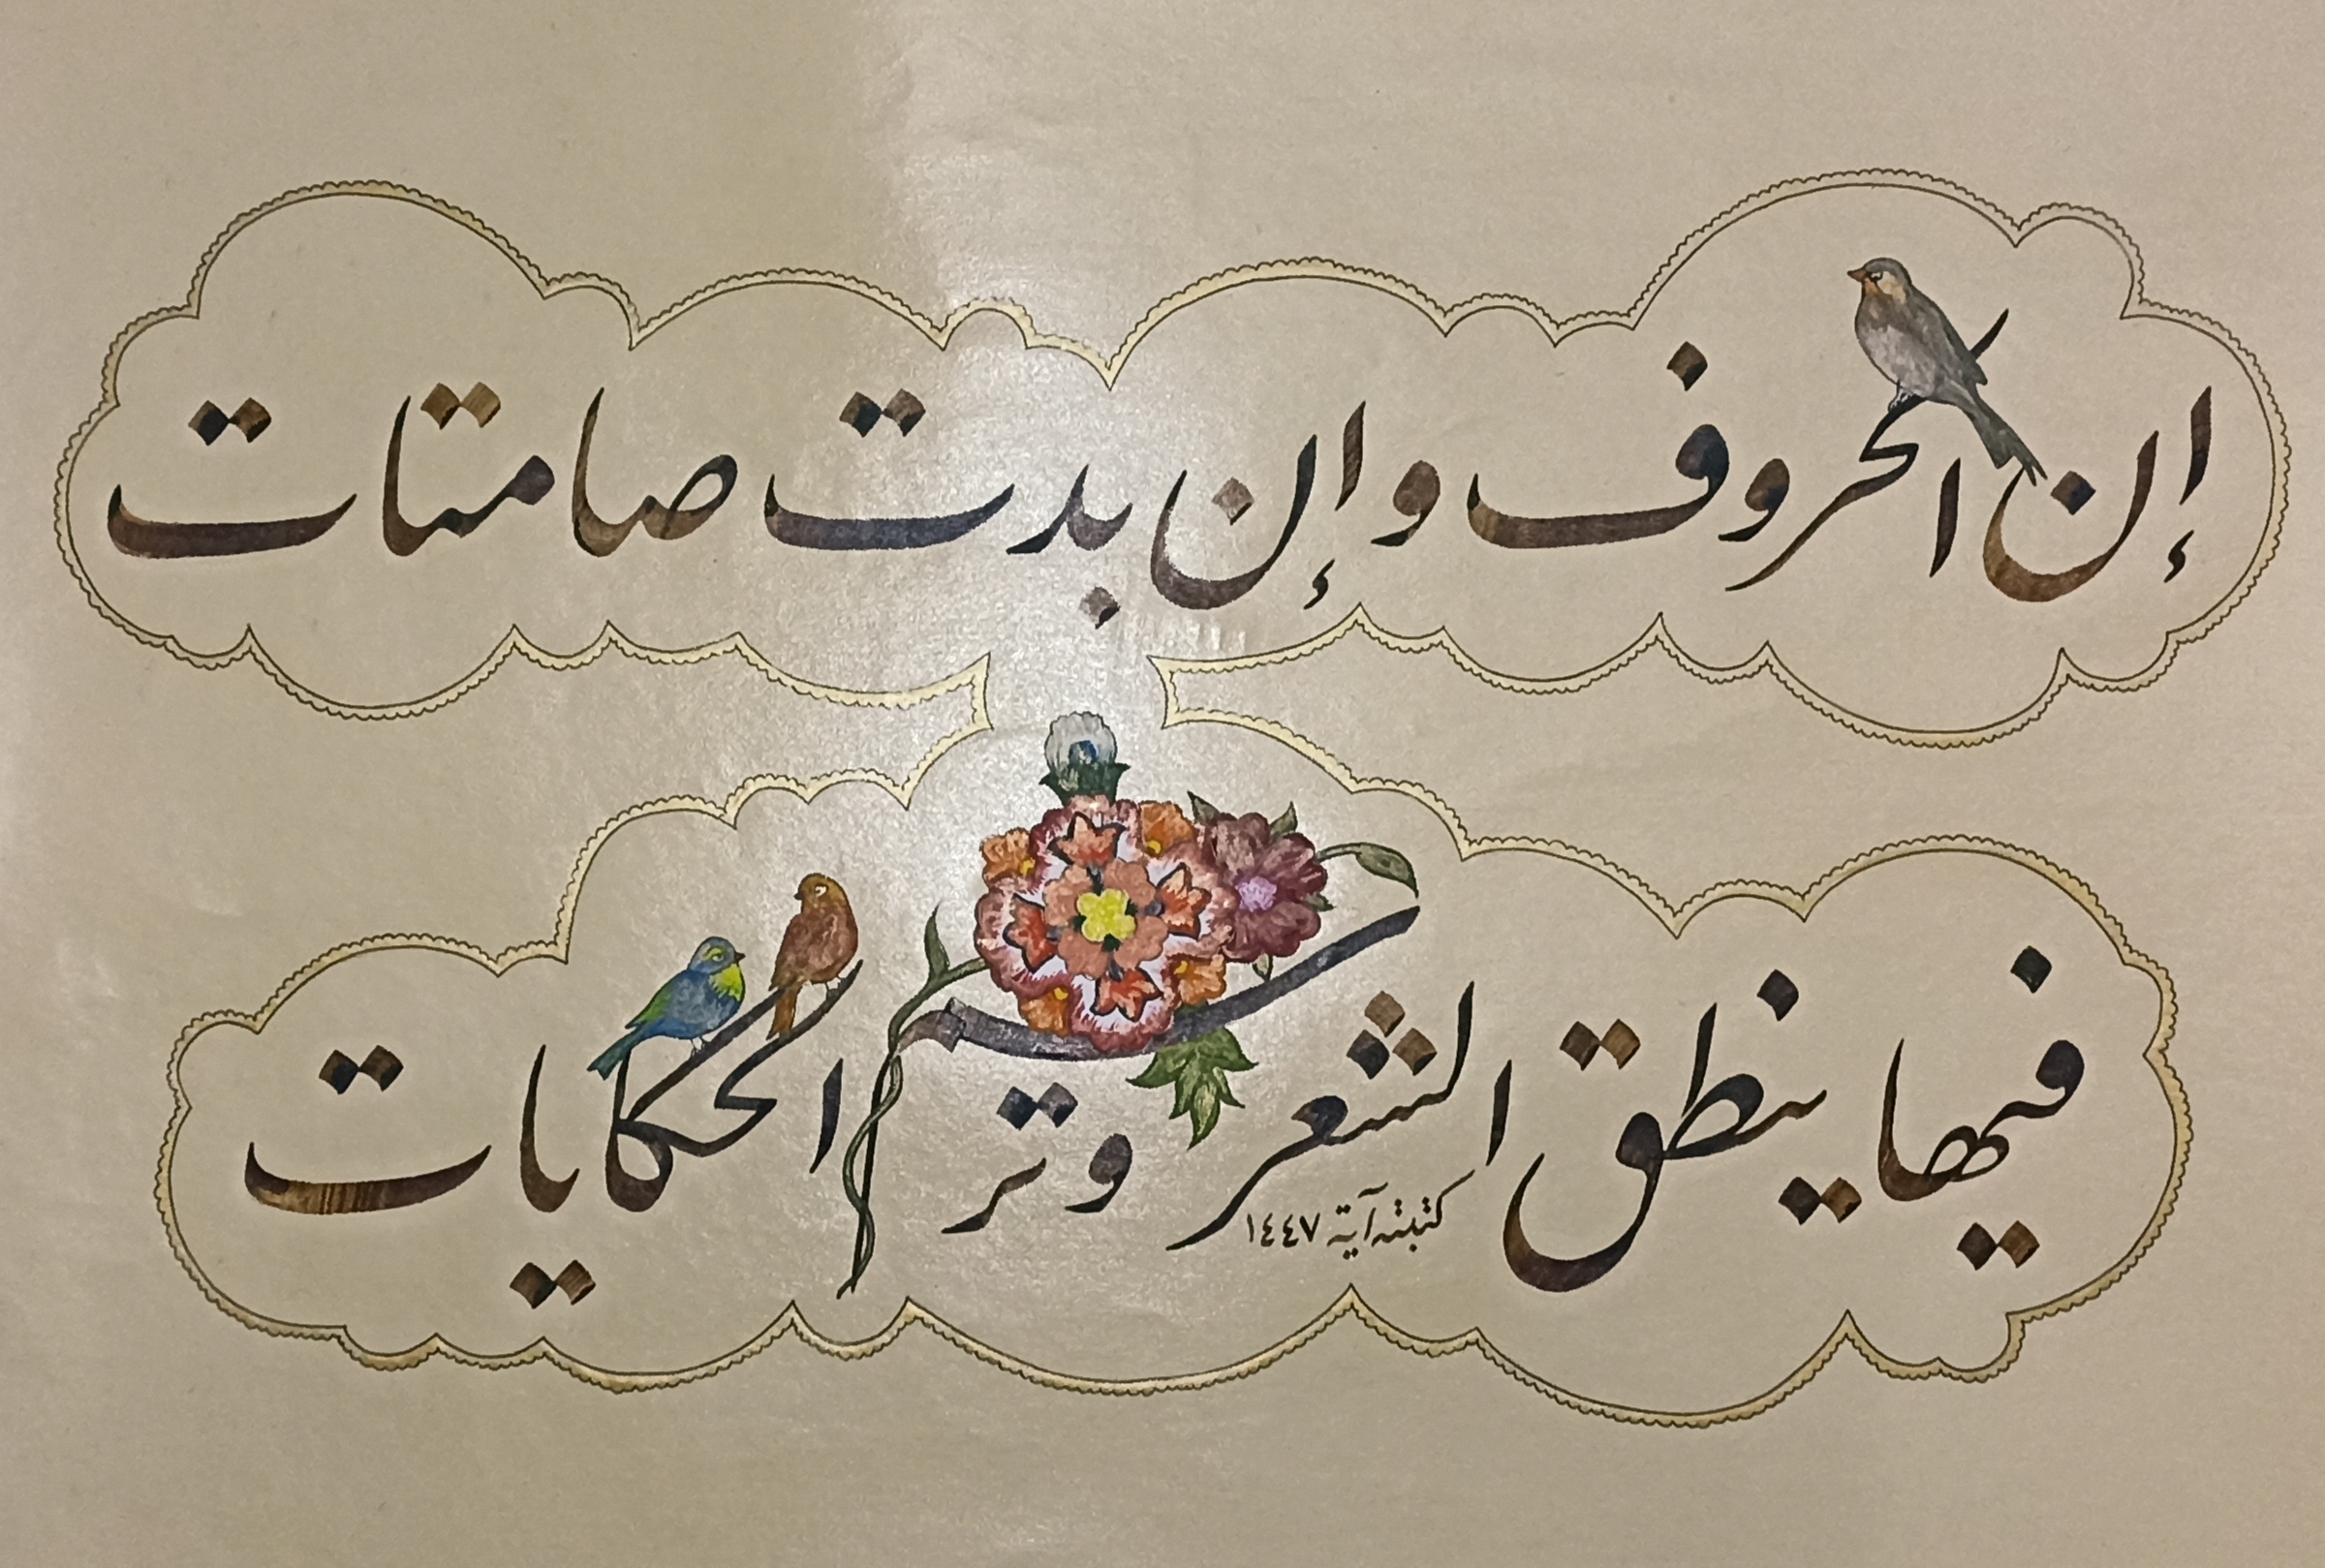 إن الحروف وإن بدت صامتات
فيها ينطق الشعر وترسم الحكايات
كتبته آية ١٤٤٧